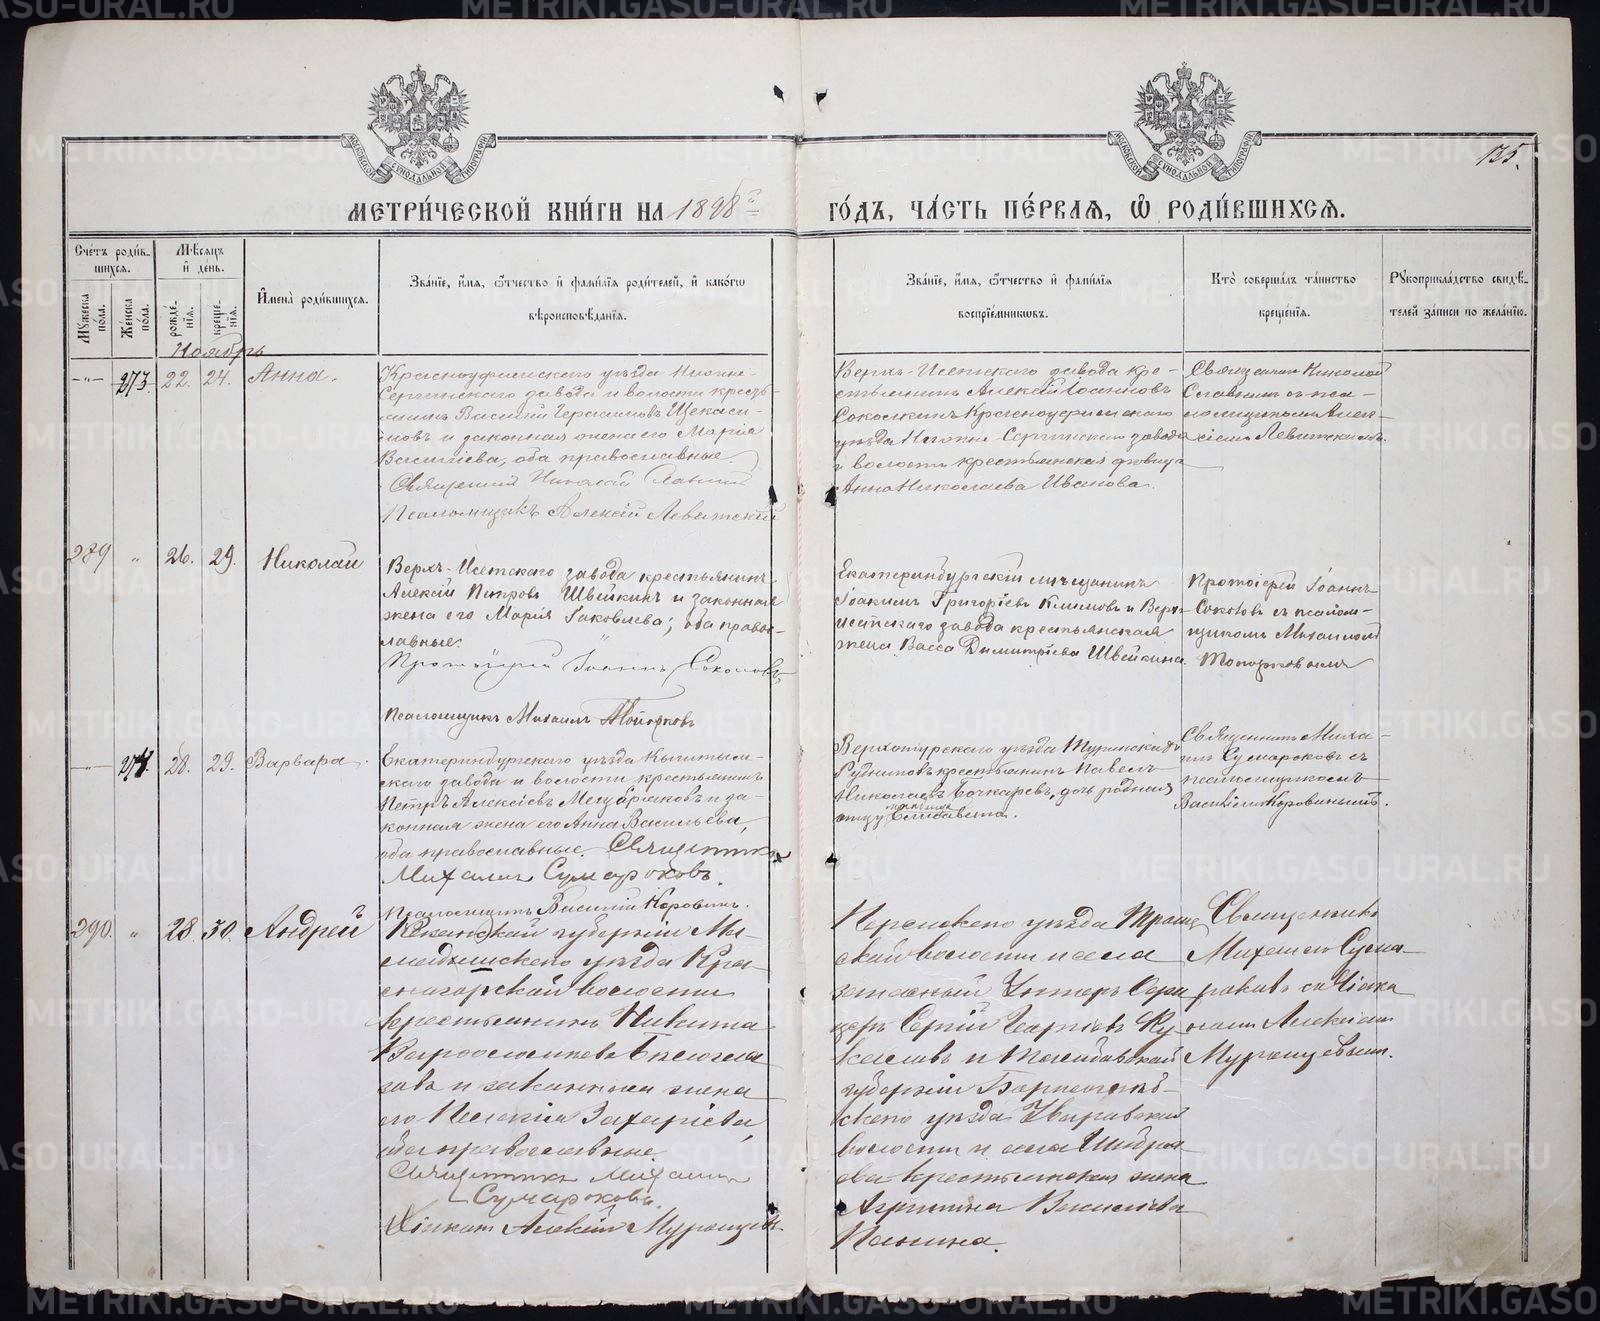 METRIKI.GASO-URAL.RU
135.
МОСКОВСКОЙ СѴНОДАЛЬНОЙ ТИПОГРАФІИ
МЕТРИ́ЧЕСКОЙ КНИ́ГИ НА 1898 й ГО́ДЪ, ЧА́СТЬ ПЕ́РВАЯ, Ѽ РОДИ́ВШИХСЯ.
Сче́тъ роди́вшихся.
Му́жеска по́ла.
Же́нска по́ла.
Мѣ́сяцъ и҆ де́нь.
рожде́нїя.
креще́нїя.
И҆мена̀ роди́вшихся.
Зва́нїе, и҆́мя, ѻ҆́тчество и҆ фами́лїя роди́телей, и҆ како́гѡ
вѣроисповѣ́данїя.
Зва́нїе, и҆́мя, ѻ҆́тчество и҆ фами́лїя
воспрїе́мникѡвъ.
Кто̀ соверша́лъ та́инство
креще́нїя.
Рукоприкла́дство свидѣ́-
телей за́писи по жела́нїю.
Ноябрь
-"- 273 22. 24. Анна.
Красноуфимскаго уѣзда Нижне-
Сергинскаго завода и волости кресть-
янинъ Василій Герасимовъ
и законная жена его Марія
Васильева, оба православные.
Священникъ Николай
Псаломщикъ Алексѣй Левитскій
Верхъ-Исетскаго завода кре-
стьянинъ Алексѣй Іоанновъ
Соколкинъ Красноуфимскаго
уѣзда Нижне-Сергинскаго завода
и волости крестьянская дѣвица
Анна Николаева Иванова.
Священникъ Николай
съ пса-
ломщикомъ Алек-
сѣемъ Левитскимъ.
289 " 26. 29. Николай
Верхъ-Исетскаго завода крестьянинъ
Алексѣй Петровъ Швейкинъ и законная
жена его Марія Іаковлева; оба право-
славные.
Протоіерей Іоаннъ Соколовъ
Псаломщикъ Михаилъ Топорковъ
Екатеринбургскій мѣщанинъ
Іоакимъ Григоріевъ Климовъ и Верхъ-
Исетскаго завода крестьянская
жена Васса Димитріева Швейкина.
Протоіерей Іоаннъ
Соколовъ съ псалом-
щикомъ Михаиломъ
Топорковымъ
-"- 274. 28. 29. Варвара.
Екатеринбургскаго уѣзда Кыштым-
скаго завода и волости крестьянинъ
Петръ Алексѣевъ и за-
конная жена его Анна Васильева,
оба православные. Священникъ
Михаилъ Сумароковъ.
Псаломщикъ Василій Коровинъ.
Верхотурскаго уѣзда Туринскихъ
Рудниковъ крестьянинъ Павелъ
Николаевъ Бочкаревъ, дочь родная
Елисавета.
Священникъ Миха-
илъ Сумароковъ съ
псаломщикомъ
Василіемъ Коровинымъ.
290. " 28 30. Андрей
губерніи Ма-
мадышскаго уѣзда Кра-
сногорской волости
крестьянинъ Никита
и законная жена
его Пелагія Захаріева,
оба православные.
Священникъ Михаилъ
Сумароковъ.
Діаконъ Алексѣй Мурашевъ.
Пермскаго уѣзда Троиц-
кой волости и села
запасный Унтеръ Офи
церъ Сергій Георгіевъ Ку
и Тамбовской
губерніи Борисоглѣб-
скаго уѣзда Уваровской
волости и села Шибря
ева крестьянская жена
Агрипина Василіева
Панина.
Священникъ
Михаилъ Сума-
роковъ съ Діако
номъ Алексѣемъ
Мурашевымъ.